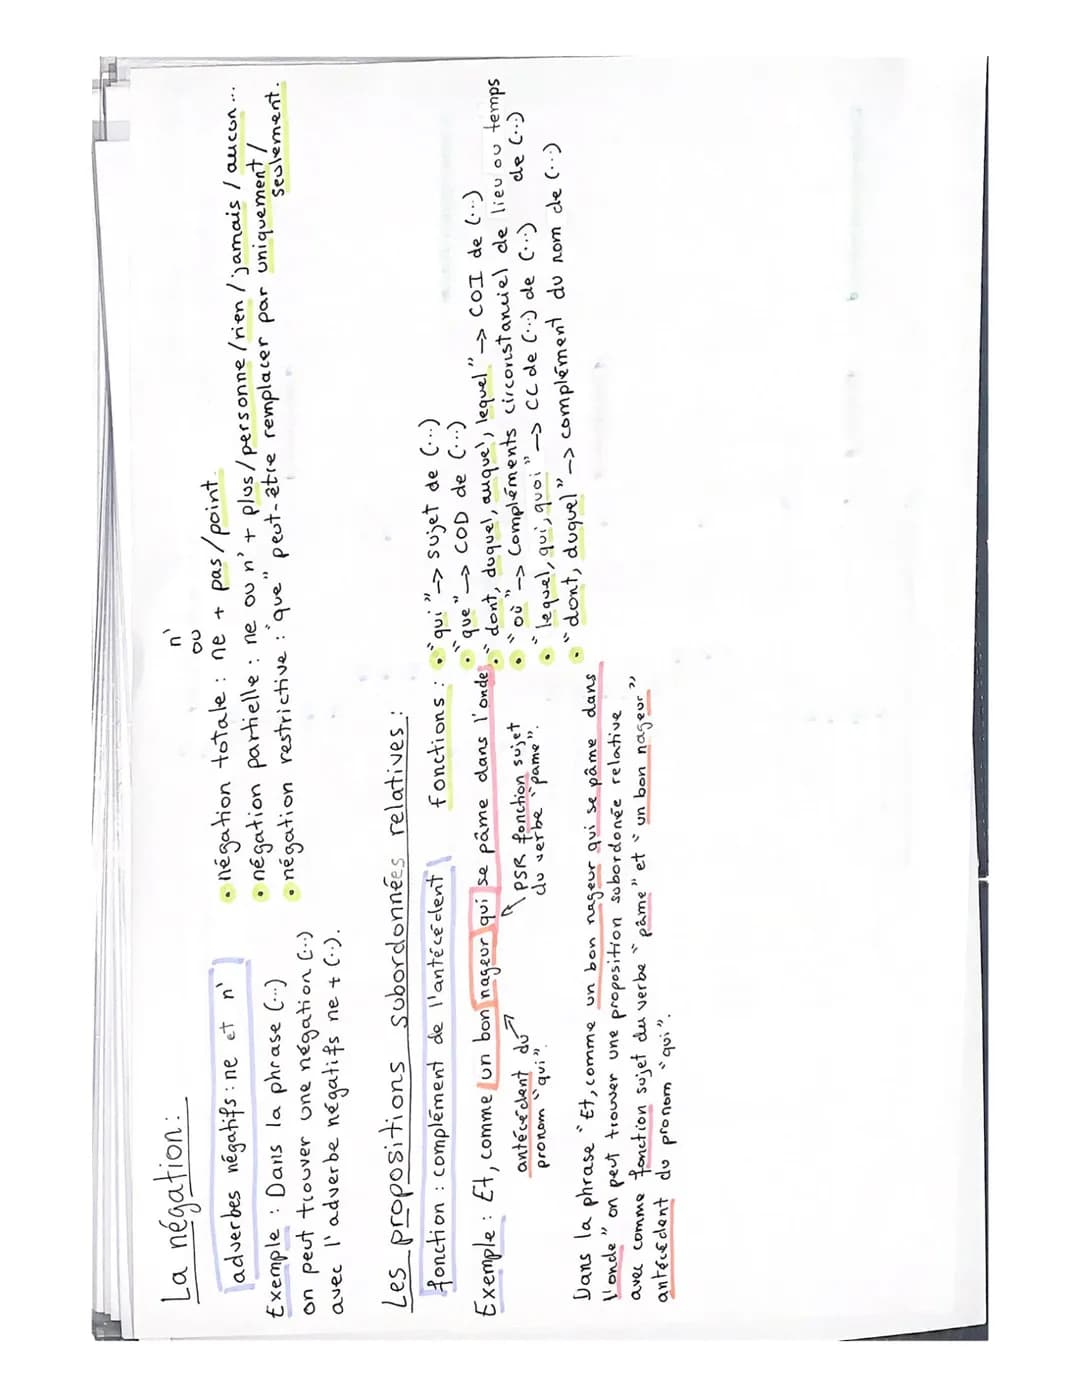 La négation :
adverbes négatifs : ne et n'
Exemple : Dans la phrase (...)
on peut trouver une négation (...)
avec l'adverbe négatifs ne + (...).
n'
ou
négation totale : ne + pas / point.
négation partielle : ne ou n' + plus / personne / rien / jamais / aucun...
négation restrictive : "que" peut-être remplacer par uniquement /
seulement.
Les propositions subordonnées relatives :
fonction : complément de l'antécédent
Exemple : Et, comme un bon nageur qui se pâme dans l'onde,
antécédent du
pronom "qui".
PSR fonction sujet
du verbe "pame".
fonctions :
"qui" -> sujet de (...)
"que" -> COD de (...)
"dont, duquel, auquel, lequel" -> COI de (...)
"où" -> Compléments circonstanciel de lieu ou temps
de (...)
"lequel, qui, quoi" -> CC de (...) de (...)
"dont, duquel" -> complément du nom de (...)
Dans la phrase "Et, comme un bon nageur qui se pâme dans
l'onde" on peut trouver une proposition subordonée relative
avec comme fonction sujet du verbe "pâme" et "un bon nageur"
antécédent du pronom "qui".